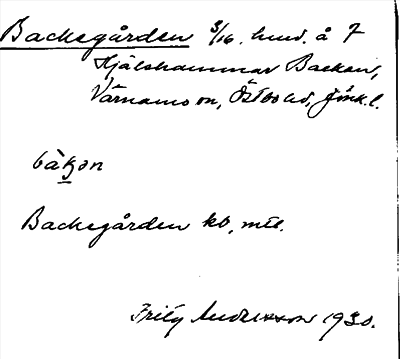 Backegården 3/16 hmd. å 7
Hjälshammar Backen,
Värnamo sn, Östbo hd, Jönk. l.
bàkən
Backegården kb, mtl.
Frity Andersson 1930.